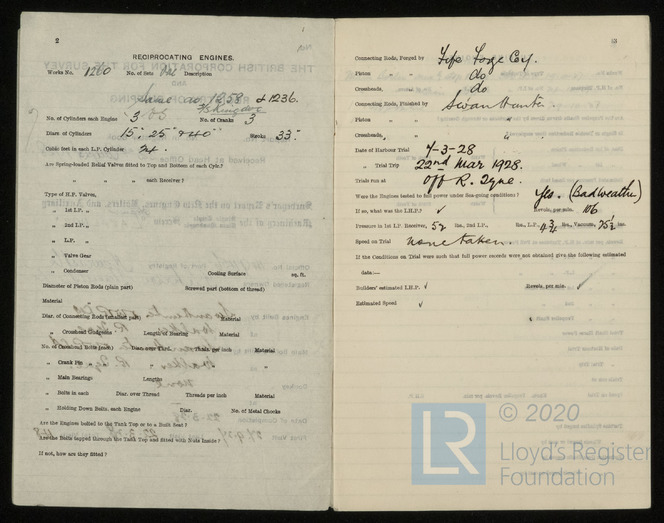 2
RECIPROCATING ENGINES.
Works No. 1260 No. of Sets One Description
Same as 1258 & 1236.
No. of Cylinders each Engine 3 No. of Cranks 3
Diars. of Cylinders 15", 25" & 40" Stroke 33"
Cubic feet in each L.P. Cylinder
Are Spring-loaded Relief Valves fitted to Top and Bottom of each Cylr.?
„ „ each Receiver?
Type of H.P. Valves,
„ 1st I.P. „
„ 2nd I.P. „
„ L.P. „
„ Valve Gear
„ Condenser Cooling Surface sq. ft.
Diameter of Piston Rods (plain part) Screwed part (bottom of thread)
Material
Diar. of Connecting Rods (smallest part) Material
„ Crosshead Gudgeons Length of Bearing Material
No. of Crosshead Bolts (each) Diar. over Thrd. Thrds. per inch Material
„ Crank Pin „ „ „ „
„ Main Bearings Lengths
„ Bolts in each Diar. over Thread Threads per inch Material
„ Holding Down Bolts, each Engine Diar. No. of Metal Chocks
Are the Engines bolted to the Tank Top or to a Built Seat?
Are the Bolts tapped through the Tank Top and fitted with Nuts Inside?
If not, how are they fitted?
3
Connecting Rods, Forged by Fife Forge Coy.
Piston „ do
Crossheads, do
Connecting Rods, Finished by Swan Hunter.
Piston „ „
Crossheads, „
Date of Harbour Trial 7-3-28
„ Trial Trip 22nd Mar 1928.
Trials run at Off R. Tyne.
Were the Engines tested to full power under Sea-going conditions? Yes. (Bad Weather)
If so, what was the I.H.P.? ✓ Revols. per min. 106
Pressure in 1st I.P. Receiver, 52 lbs., 2nd I.P., lbs., L.P. 4¾ lbs., Vacuum, 25½ ins.
Speed on Trial none taken.
If the Conditions on Trial were such that full power records were not obtained give the following estimated
data:—
Builders' estimated I.H.P. ✓ Revols. per min. ✓
Estimated Speed ✓
LR
© 2020
Lloyd's Register
Foundation